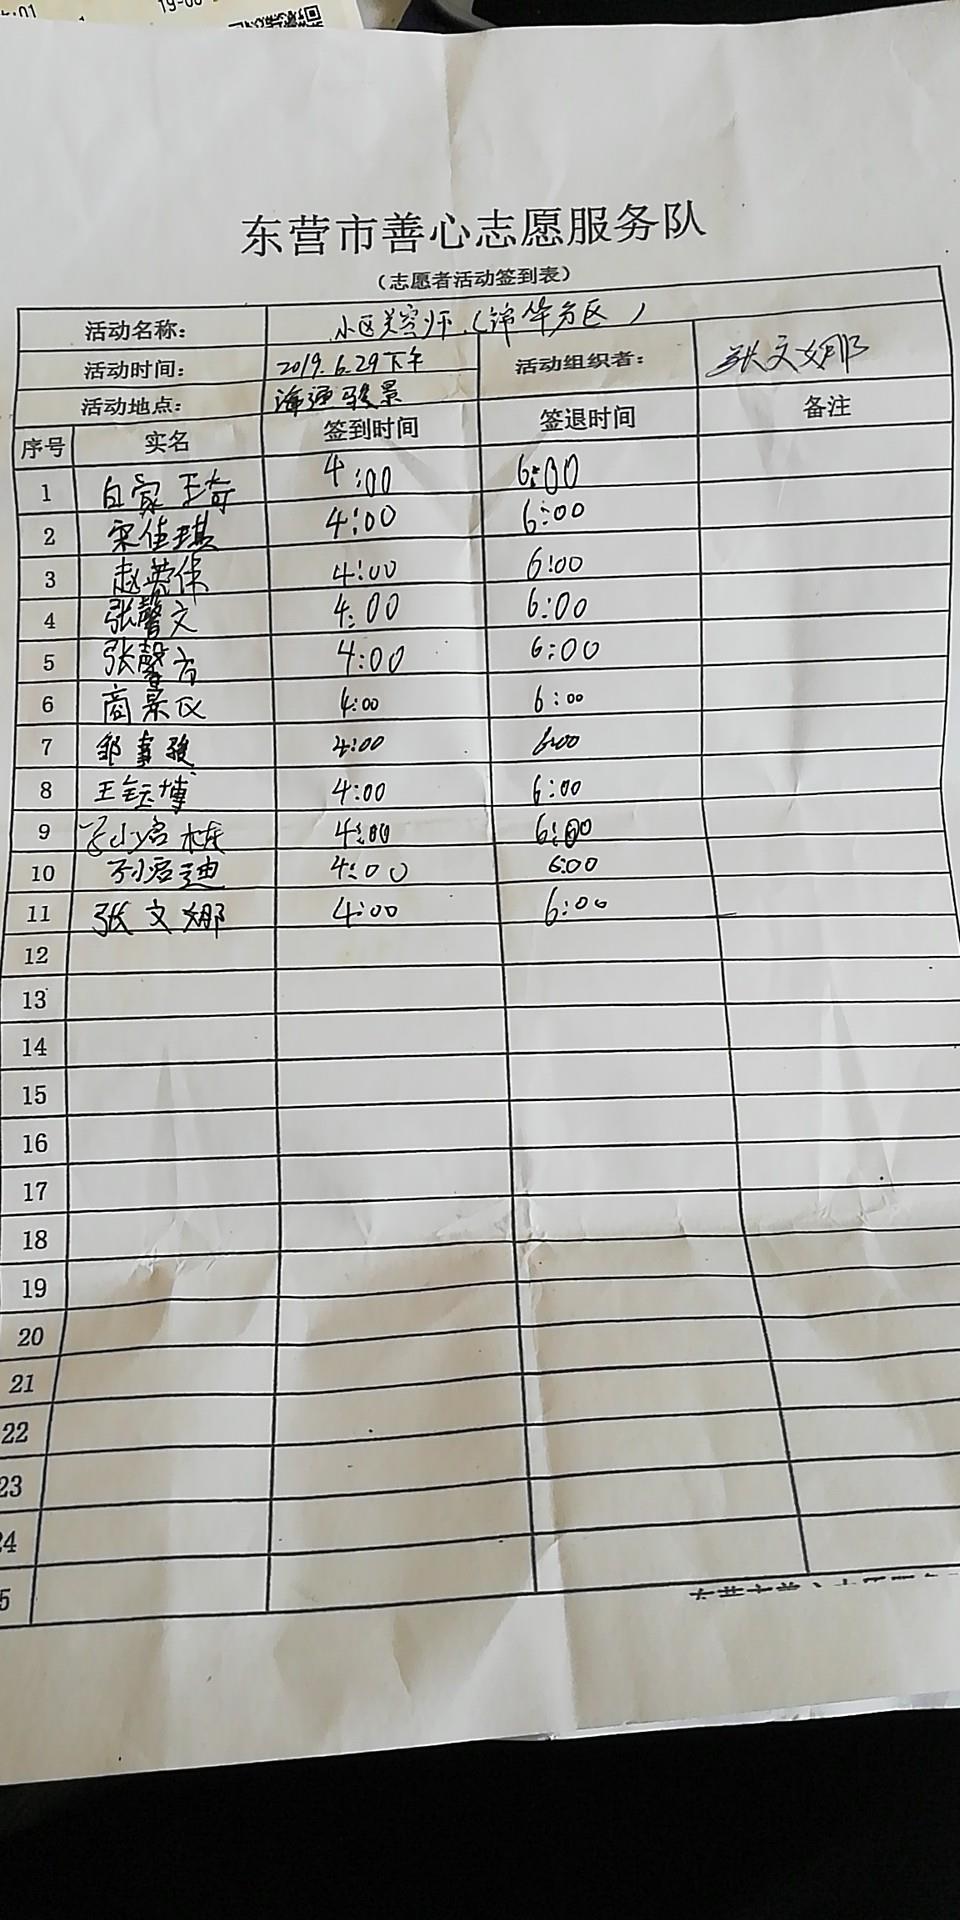 东营市善心志愿服务队
（志愿者活动签到表）
活动名称： 小区美容师（锦华分区）
活动时间： 2019.6.29下午 活动组织者： 张文娜
活动地点： 海通骏景
序号 实名 签到时间 签退时间 备注
1 白家 4:00 6:00
2 宋佳琪 4:00 6:00
3 赵英保 4:00 6:00
4 张馨文 4:00 6:00
5 张馨方 4:00 6:00
6 商景仪 4:00 6:00
7 邹 骏 4:00 6:00
8 王钰博 4:00 6:00
9 孙启栋 4:00 6:00
10 孙启迪 4:00 6:00
11 张文娜 4:00 6:00
12
13
14
15
16
17
18
19
20
21
22
23
24
5